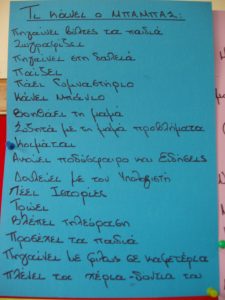 Τι κάνει ο ΜΠΑΜΠΑΣ:
Πηγαίνει βόλτες τα παιδιά
Ζωγραφίζει
Πηγαίνει στη δουλειά
Παίζει
Πάει Γυμναστήριο
Κάνει Μπάνιο
Βοηθάει τη μαμά
Συζητά με τη μαμά προβλήματα
Κοιμάται
Ακούει ποδόσφαιρο και Ειδήσεις
Δουλεύει με τον Υπολογιστή
Λέει Ιστορίες
Τρώει
Βλέπει τηλεόραση
Προσέχει τα παιδιά
Πηγαίνει με φίλους σε καφετέρια
Πλένει τα χέρια - δόντια του